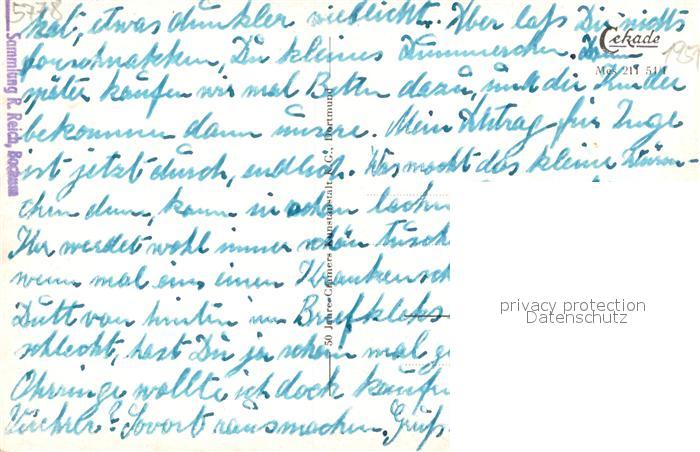 5778
hat, etwas dunkler vielleicht. Aber laß Dir nichts
Cekade
vorschnakken, Du kleines Dummerchen. Dann
195
Mes 211 51 1
später kaufen wir mal Betten dazu, und die Kinder
bekommen dann unsere. Mein Antrag für Inge
ist jetzt durch, endlich. Was macht das kleine Würm-
chen denn, kann sie schon lachen
Ihr werdet wohl immer schön tusch
wenn mal eins einen Krankensch
Dutt von hinten im Briefklaks
schlecht, hast Du ja schon mal ge
Ohrringe wollte ich doch kaufen
Sovort rausmachen. Gruß
Sammlung R. Reich, Bochum
50 Jahre Cramers Kunstanstalt K.G., Dortmund
privacy protection
Datenschutz